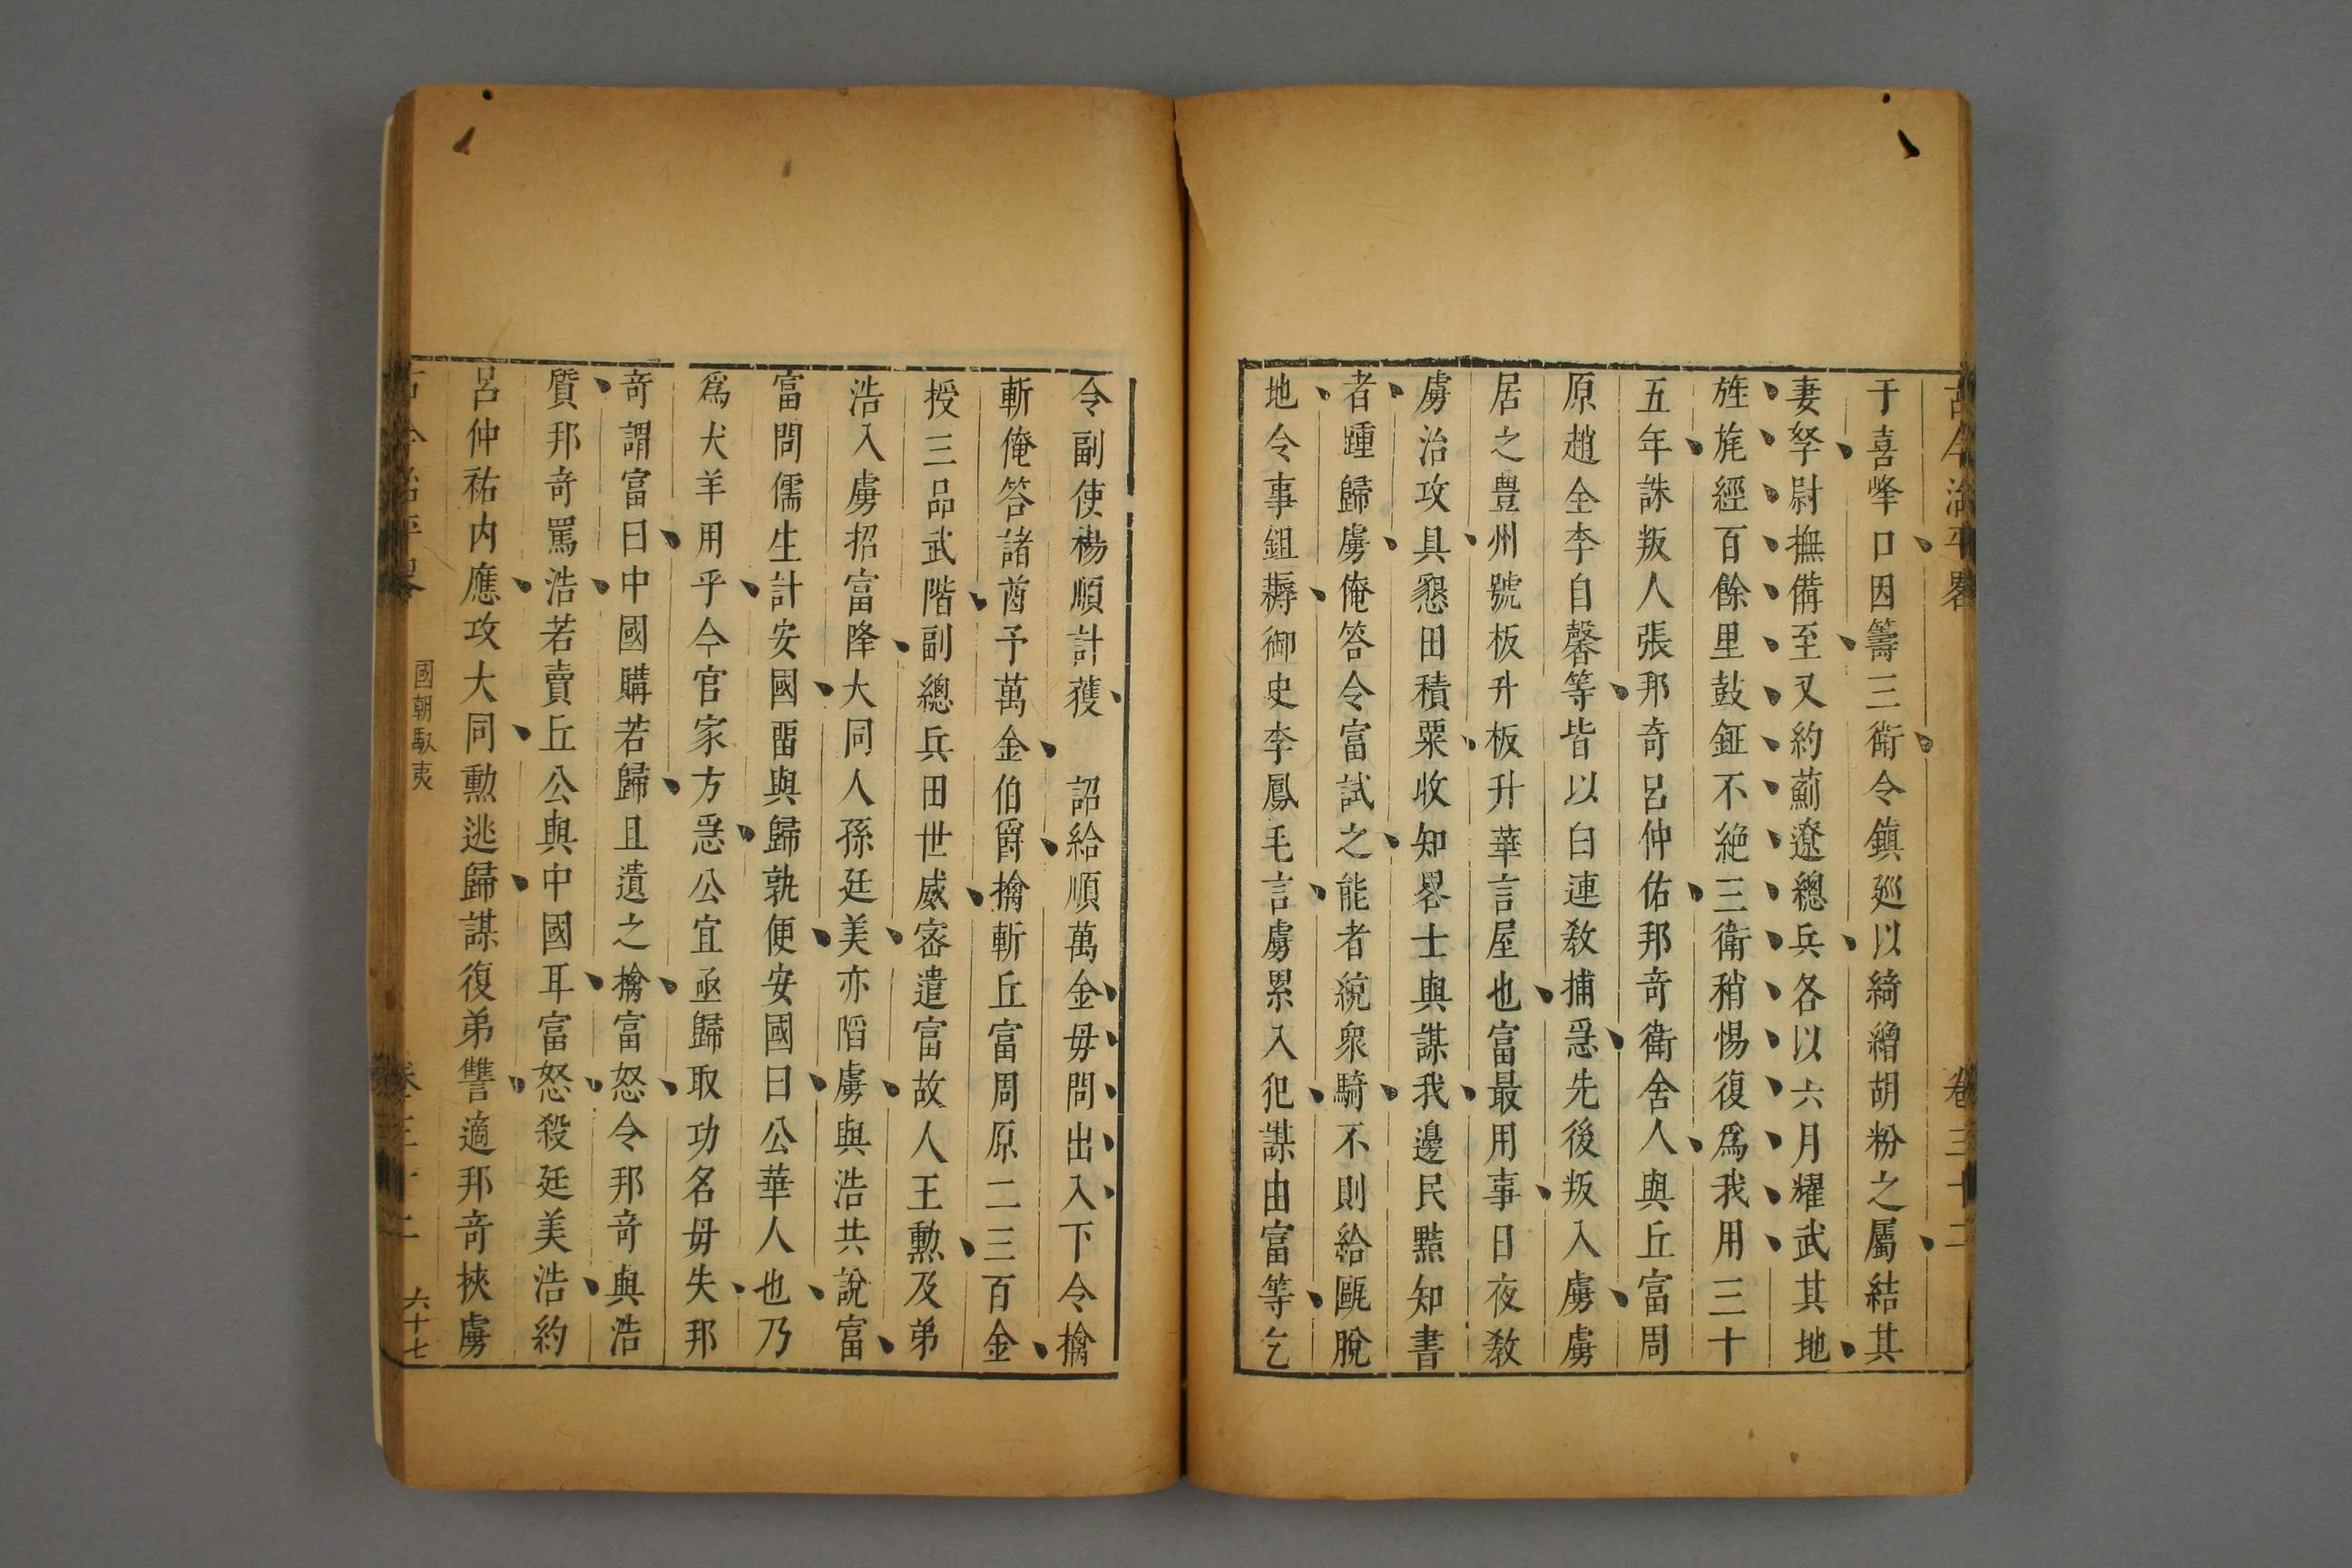 古今治平畧 卷三十二
于喜峰口因籌三衛令鎮廵以綺繒胡粉之屬結其
妻孥尉撫備至又約薊遼總兵各以六月耀武其地
旌旄經百餘里鼓鉦不絶三衛稍惕復爲我用三十
五年誅叛人張邦奇呂仲佑邦奇衛舍人與丘富周
原趙全李自馨等皆以白連敎捕急先後叛入虜虜
居之豊州號板升板升華言屋也富最用事日夜敎
虜治攻具懇田積粟收知畧士與謀我邊民黠知書
者踵歸虜俺答令富試之能者統衆騎不則給甌脫
地令事鉏耨御史李鳳毛言虜累入犯謀由富等乞
令副使楊順計獲 詔給順萬金毋問出入下令擒
斬俺答諸酋予萬金伯爵擒斬丘富周原二三百金
授三品武階副總兵田世威密遣富故人王勲及弟
浩入虜招富降大同人孫廷美亦陷虜與浩共說富
富問儒生計安國畱與歸孰便安國曰公華人也乃
爲犬羊用乎今官家方急公宜亟歸取功名毋失邦
奇謂富曰中國購若歸且遺之擒富怒令邦奇與浩
質邦奇罵浩若賣丘公與中國耳富怒殺廷美浩約
呂仲祐内應攻大同勲逃歸謀復弟讐適邦奇挾虜
古今治平畧 國朝馭夷 卷三十二 六十七